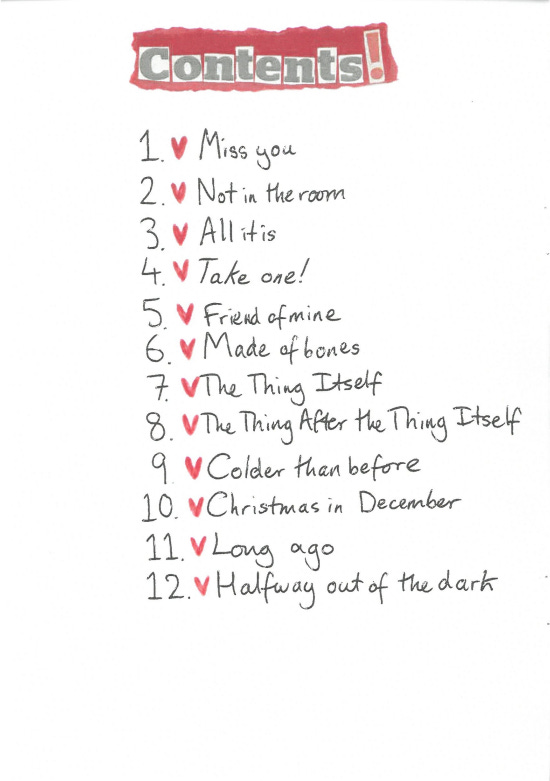 Contents!
1. ♥ Miss you
2. ♥ Not in the room
3. ♥ All it is
4. ♥ Take one!
5. ♥ Friend of mine
6. ♥ Made of bones
7. ♥ The Thing Itself
8. ♥ The Thing After the Thing Itself
9. ♥ Colder than before
10. ♥ Christmas in December
11. ♥ Long ago
12. ♥ Halfway out of the dark